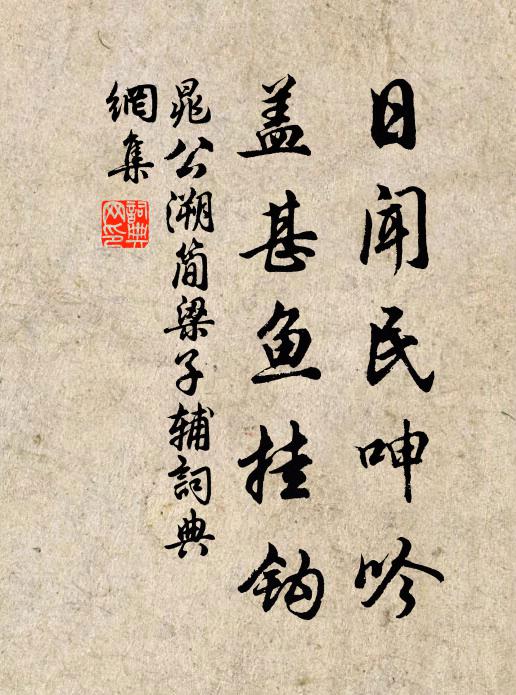 日闻民呻吟
盖甚鱼挂钩
晁公溯简梁子辅詞典
網集
詞典網印